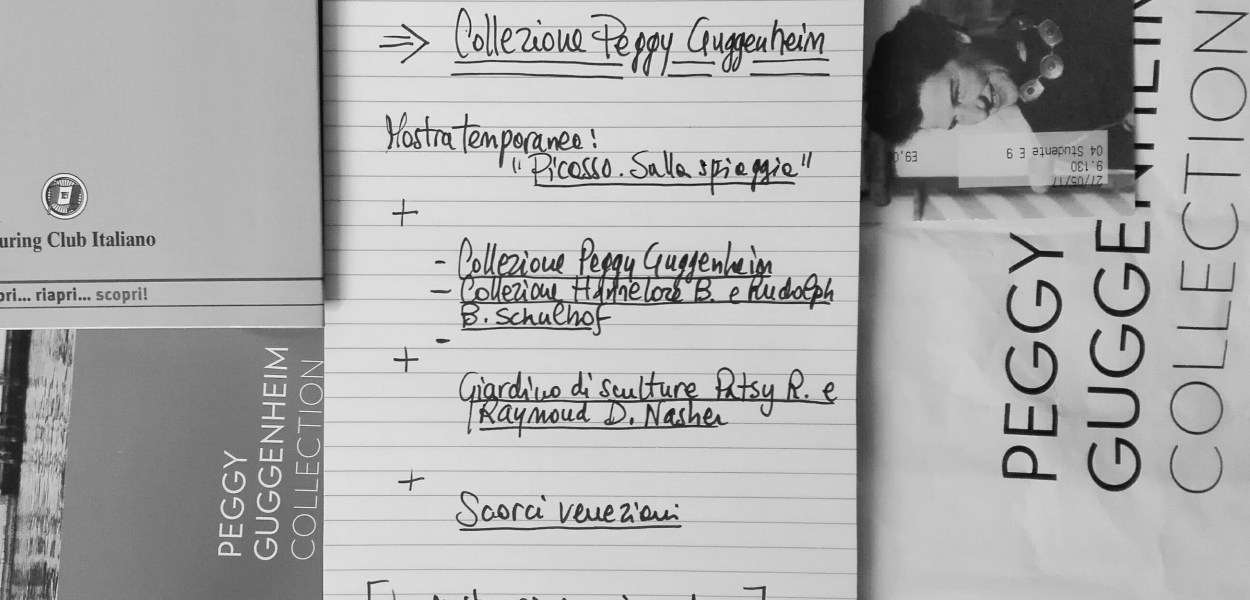 uring Club Italiano
ori... riapri... scopri!
PEGGY
GUGGENHEIM
COLLECTION
⇒ Collezione Peggy Guggenheim
Mostra temporanea:
"Picasso. Sulla spiaggia"
+
- Collezione Peggy Guggenheim
- Collezione Hannelore B. e Rudolph
B. Schulhof
+ -
Giardino di sculture Patsy R. e
Raymond D. Nasher
+
Scorci veneziani
27/05/17
9.130
04 Studente E 9
E9,0
PEGGY
GUGGENHEIM
COLLECTION